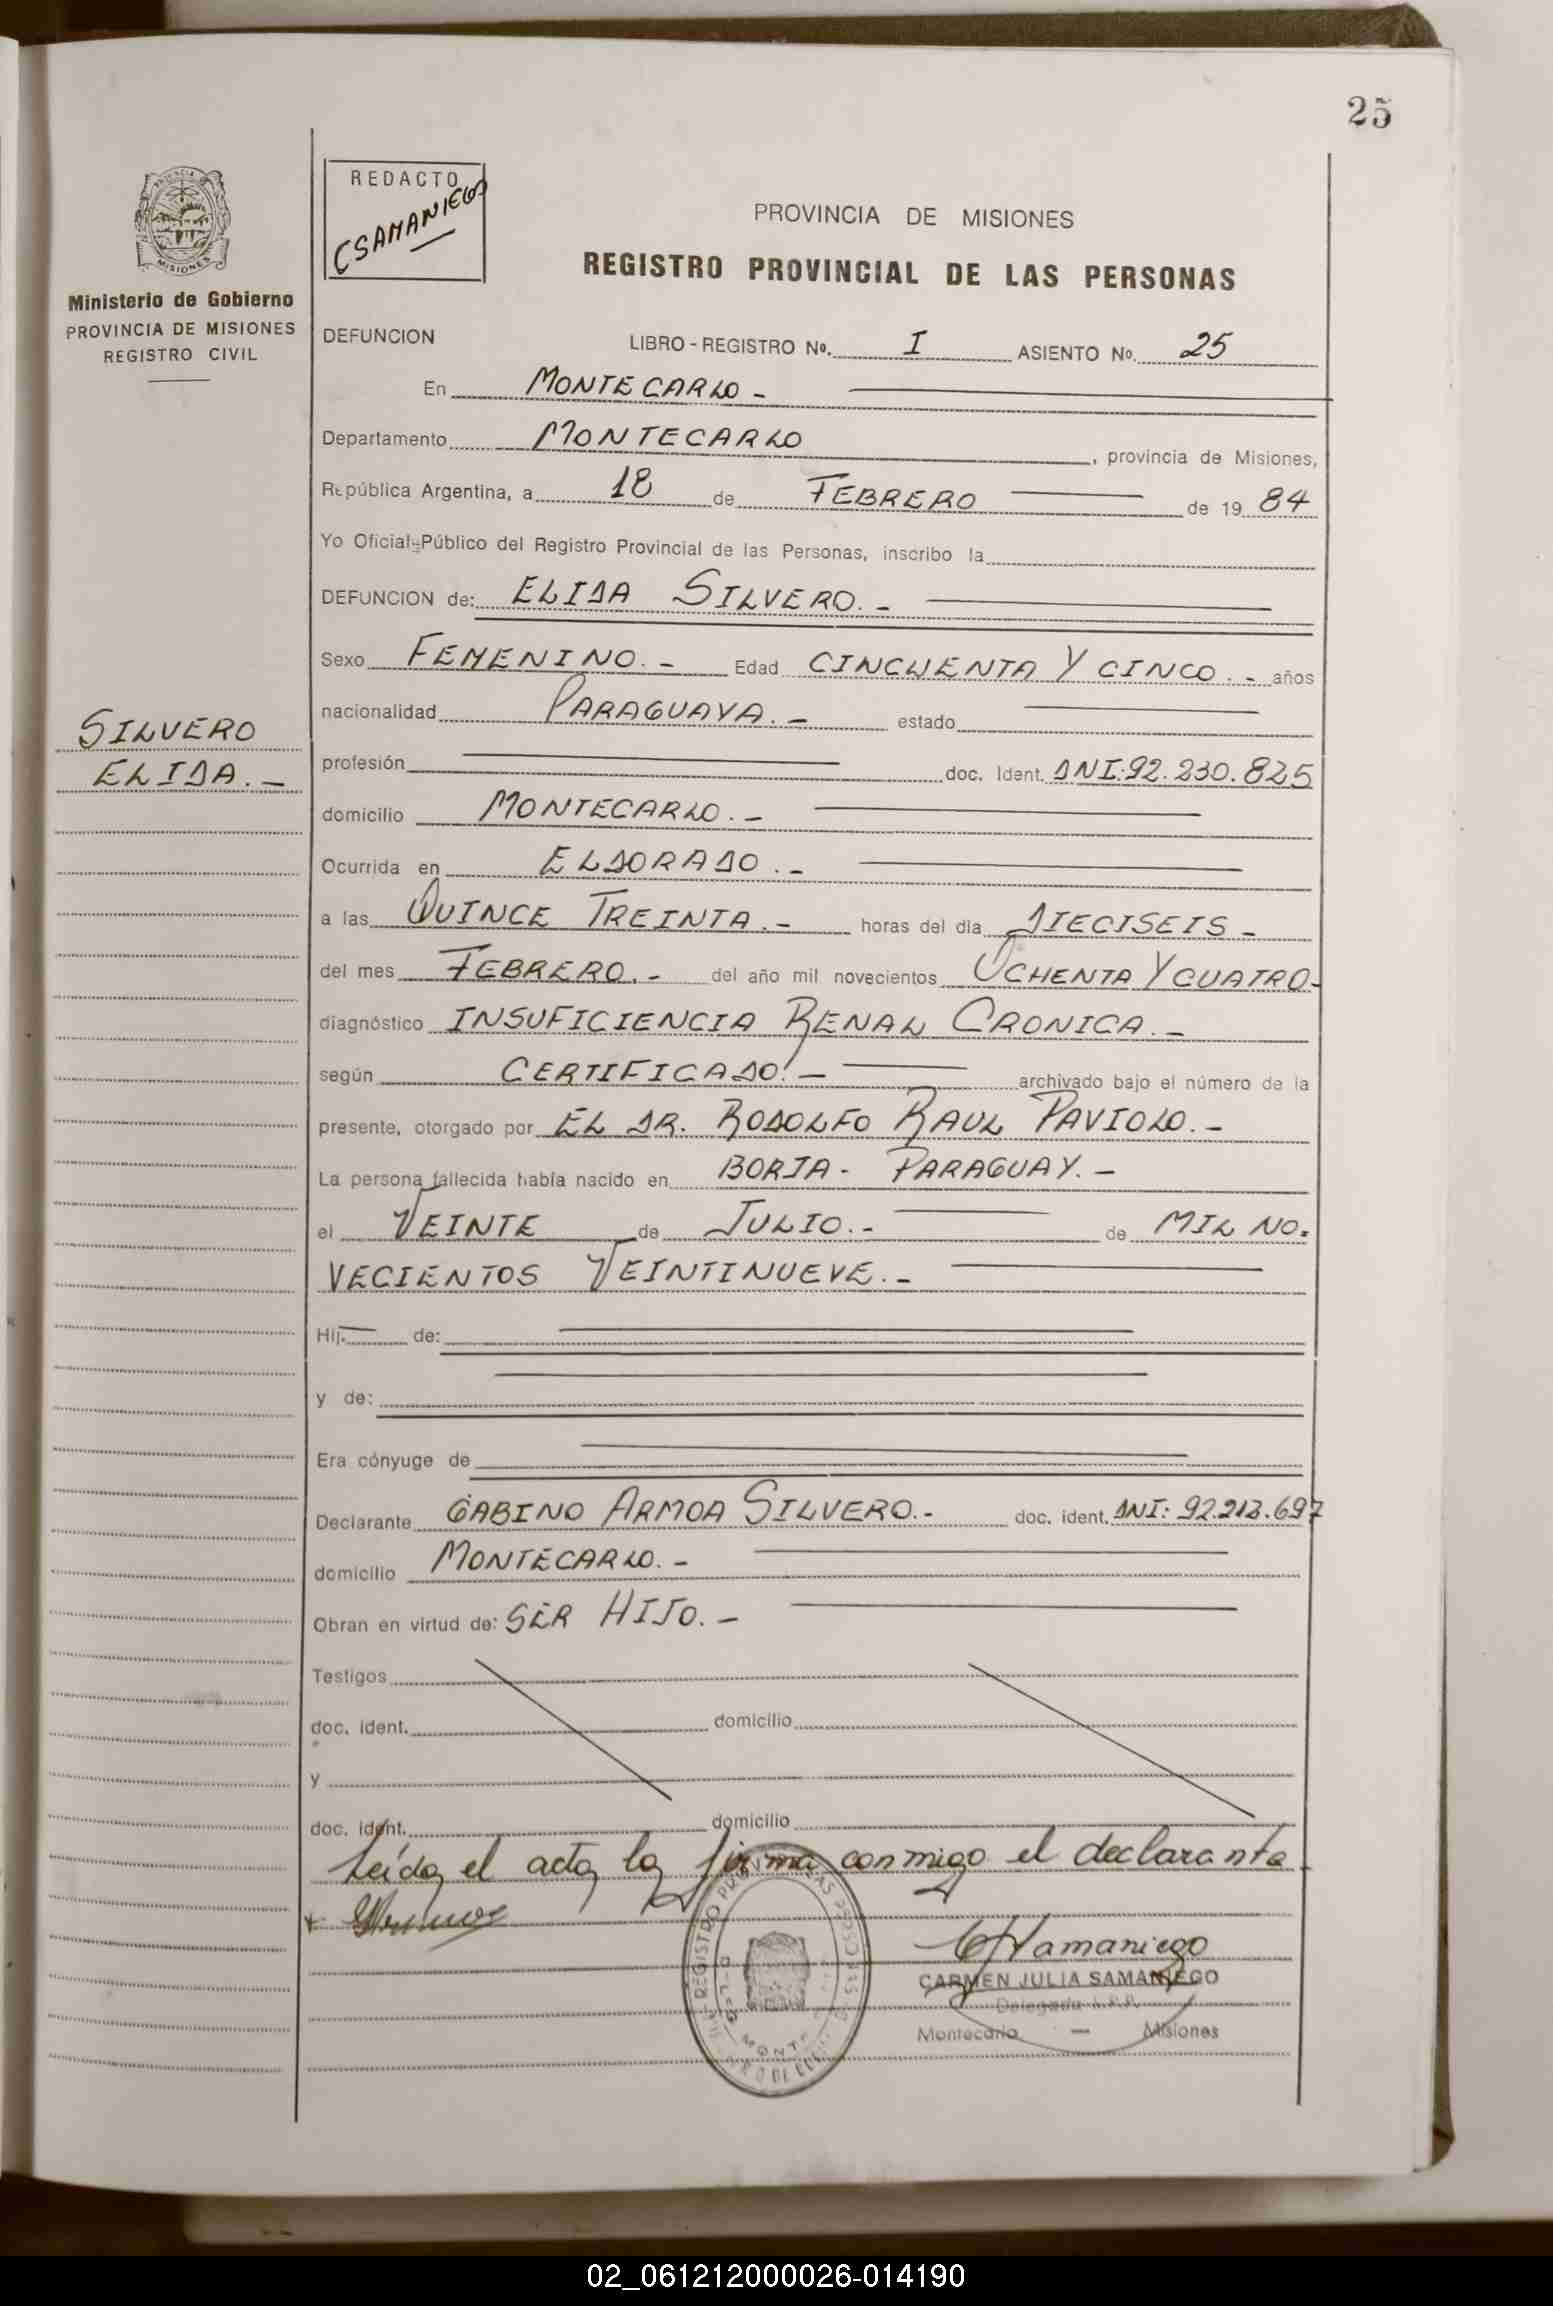 25
REDACTO
CSAMANIEGO
PROVINCIA DE MISIONES
REGISTRO PROVINCIAL DE LAS PERSONAS
MISIONES
Ministerio de Gobierno
PROVINCIA DE MISIONES
REGISTRO CIVIL
DEFUNCION LIBRO - REGISTRO Nº. I ASIENTO Nº. 25
En MONTECARLO -
Departamento MONTECARLO, provincia de Misiones,
República Argentina, a 18 de FEBRERO de 19 84
Yo Oficial Público del Registro Provincial de las Personas, inscribo la
DEFUNCION de: ELIDA SILVERO. -
Sexo FEMENINO. - Edad CINCUENTA Y CINCO. - años
nacionalidad PARAGUAYA. - estado
SILVERO
ELIDA. -
profesión doc. Ident. DNI: 92.230.825
domicilio MONTECARLO. -
Ocurrida en ELDORADO. -
a las QUINCE TREINTA. - horas del día DIECISEIS -
del mes FEBRERO. - del año mil novecientos OCHENTA Y CUATRO -
diagnóstico INSUFICIENCIA RENAL CRONICA. -
según CERTIFICADO. - archivado bajo el número de la
presente, otorgado por EL DR. RODOLFO RAUL PAVIOLO. -
La persona fallecida había nacido en BORJA - PARAGUAY. -
el VEINTE de JULIO. - de MIL NO=
VECIENTOS VEINTINUEVE. -
Hij de:
y de:
Era cónyuge de
Declarante GABINO ARMOA SILVERO. - doc. ident. DNI: 92.213.697
domicilio MONTECARLO. -
Obran en virtud de: SER HIJO. -
Testigos
doc. ident. domicilio
y
doc. ident. domicilio
Leída el acta la firma conmigo el declarante
CSamaniego
CARMEN JULIA SAMANIEGO
Delegada
Montecarlo — Misiones
02_061212000026-014190